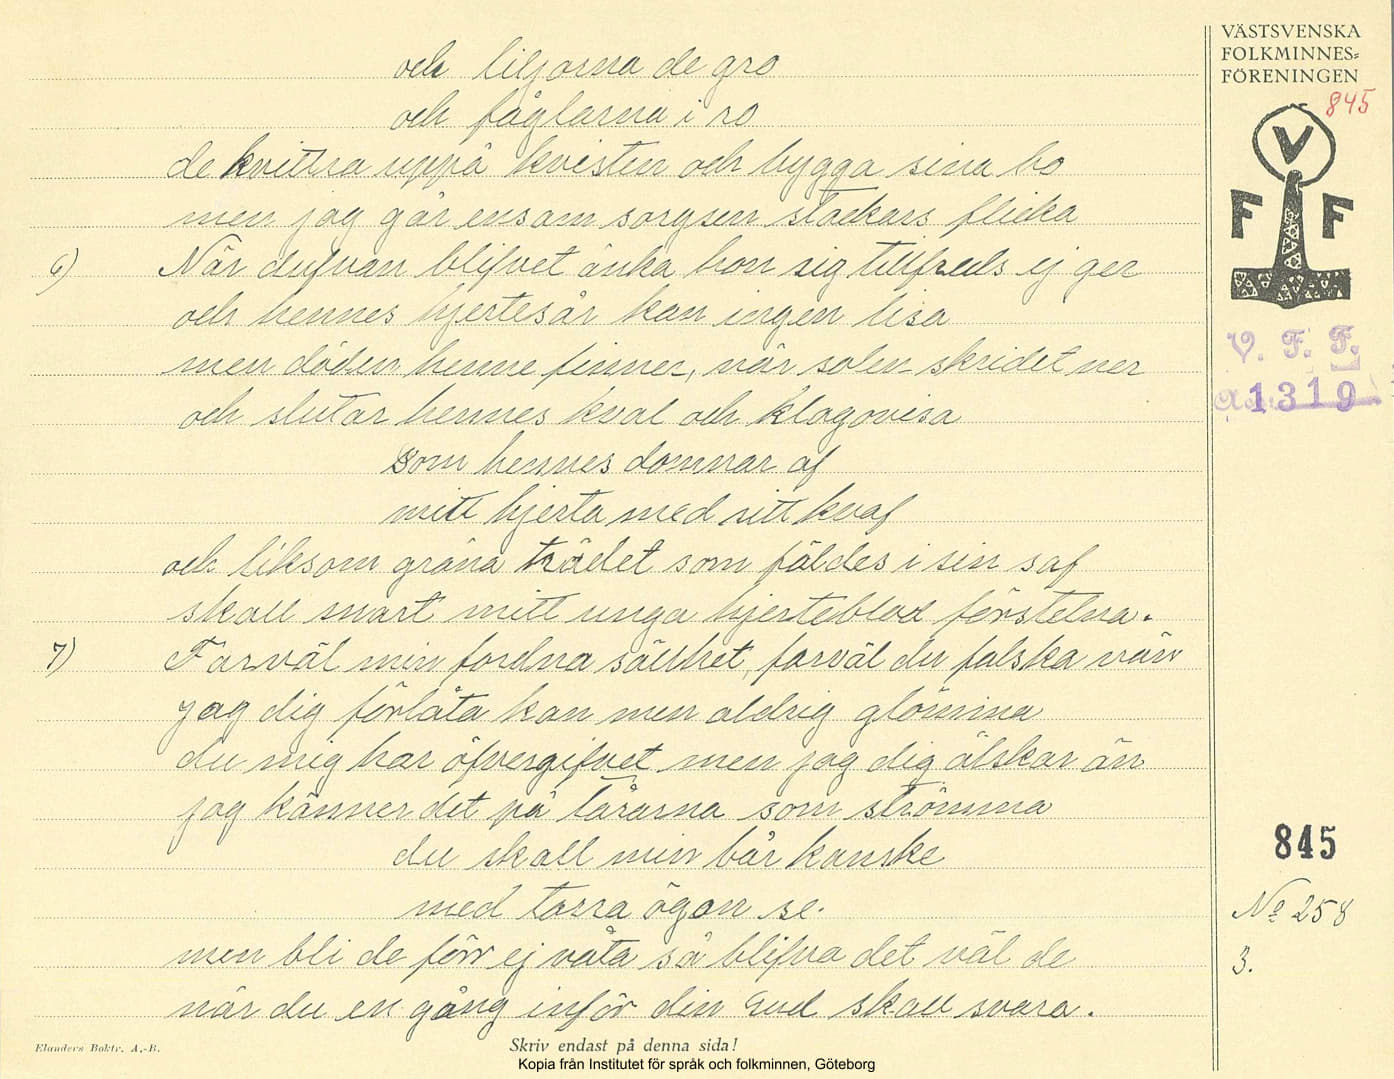 och liljorna de gro
och fåglarna i ro
de kvittra uppå kvisten och bygga sina bo
men jag går ensam sorgsen stackars flicka
6) När dufvan blifvet änka hon sig tillfreds ej ger
och hennes hjertesår kan ingen lisa
men döden henne finner, när solen skridet ner
och slutar hennes kval och klagovisa
som hennes domnar af
mitt hjerta med sitt kvaf
och liksom gröna trädet som fäldes i sin saf
skall snart mitt unga hjerteblod förstelna.
7) Farväl min fordna sällhet, farväl du falska vän
jag dig förlåta kan men aldrig glömma
du mig har öfvergifvet men jag dig älskar än
jag känner det på tårarna som strömma
du skall min bår kanske
med torra ögon se.
men bli de förr ej våta så blifva det väl de
när du en gång inför din Gud skall svara.
VÄSTSVENSKA
FOLKMINNES=
FÖRENINGEN
845
V
F F
V. F. F.
1319
845
No 258
3.
Elanders Boktr. A.-B.
Skriv endast på denna sida!
Kopia från Institutet för språk och folkminnen, Göteborg